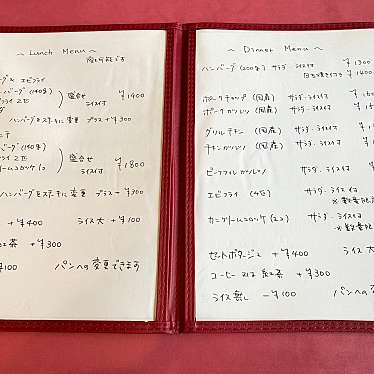 ～ Lunch Menu ～
ハンバーグと エビフライ
ハンバーグ (140g)
フライ 2匹
盛合せ
ライス付
¥1400
ハンバーグをステーキに変更 プラス +¥300
ハンバーグ (140g)
フライ 2匹
クリームコロッケ 1コ
盛合せ
ライス付
¥1800
ハンバーグをステーキに変更 プラス +¥300
+ ¥400 ライス大 +¥100
紅茶 +¥300
¥100 パンへの変更できます
～ Dinner Menu ～
ハンバーグ (200g) サラダ・ライス付 ¥1300
¥1400
ポークチャップ (国産) サラダ・ライス付
ポークカツレツ (国産) サラダ・ライス付
グリルチキン (国産) サラダ・ライス付
チキンカツレツ (国産) サラダ・ライス付
ビーフヒレカツレツ サラダ・ライス付
エビフライ (4匹) サラダ・ライス付
※数量限定
カニクリームコロッケ (2コ) サラダ・ライス付
※数量限
セットポタージュ +¥400 ライス大
コーヒー又は紅茶 +¥300
ライス無し -¥100 パンへの